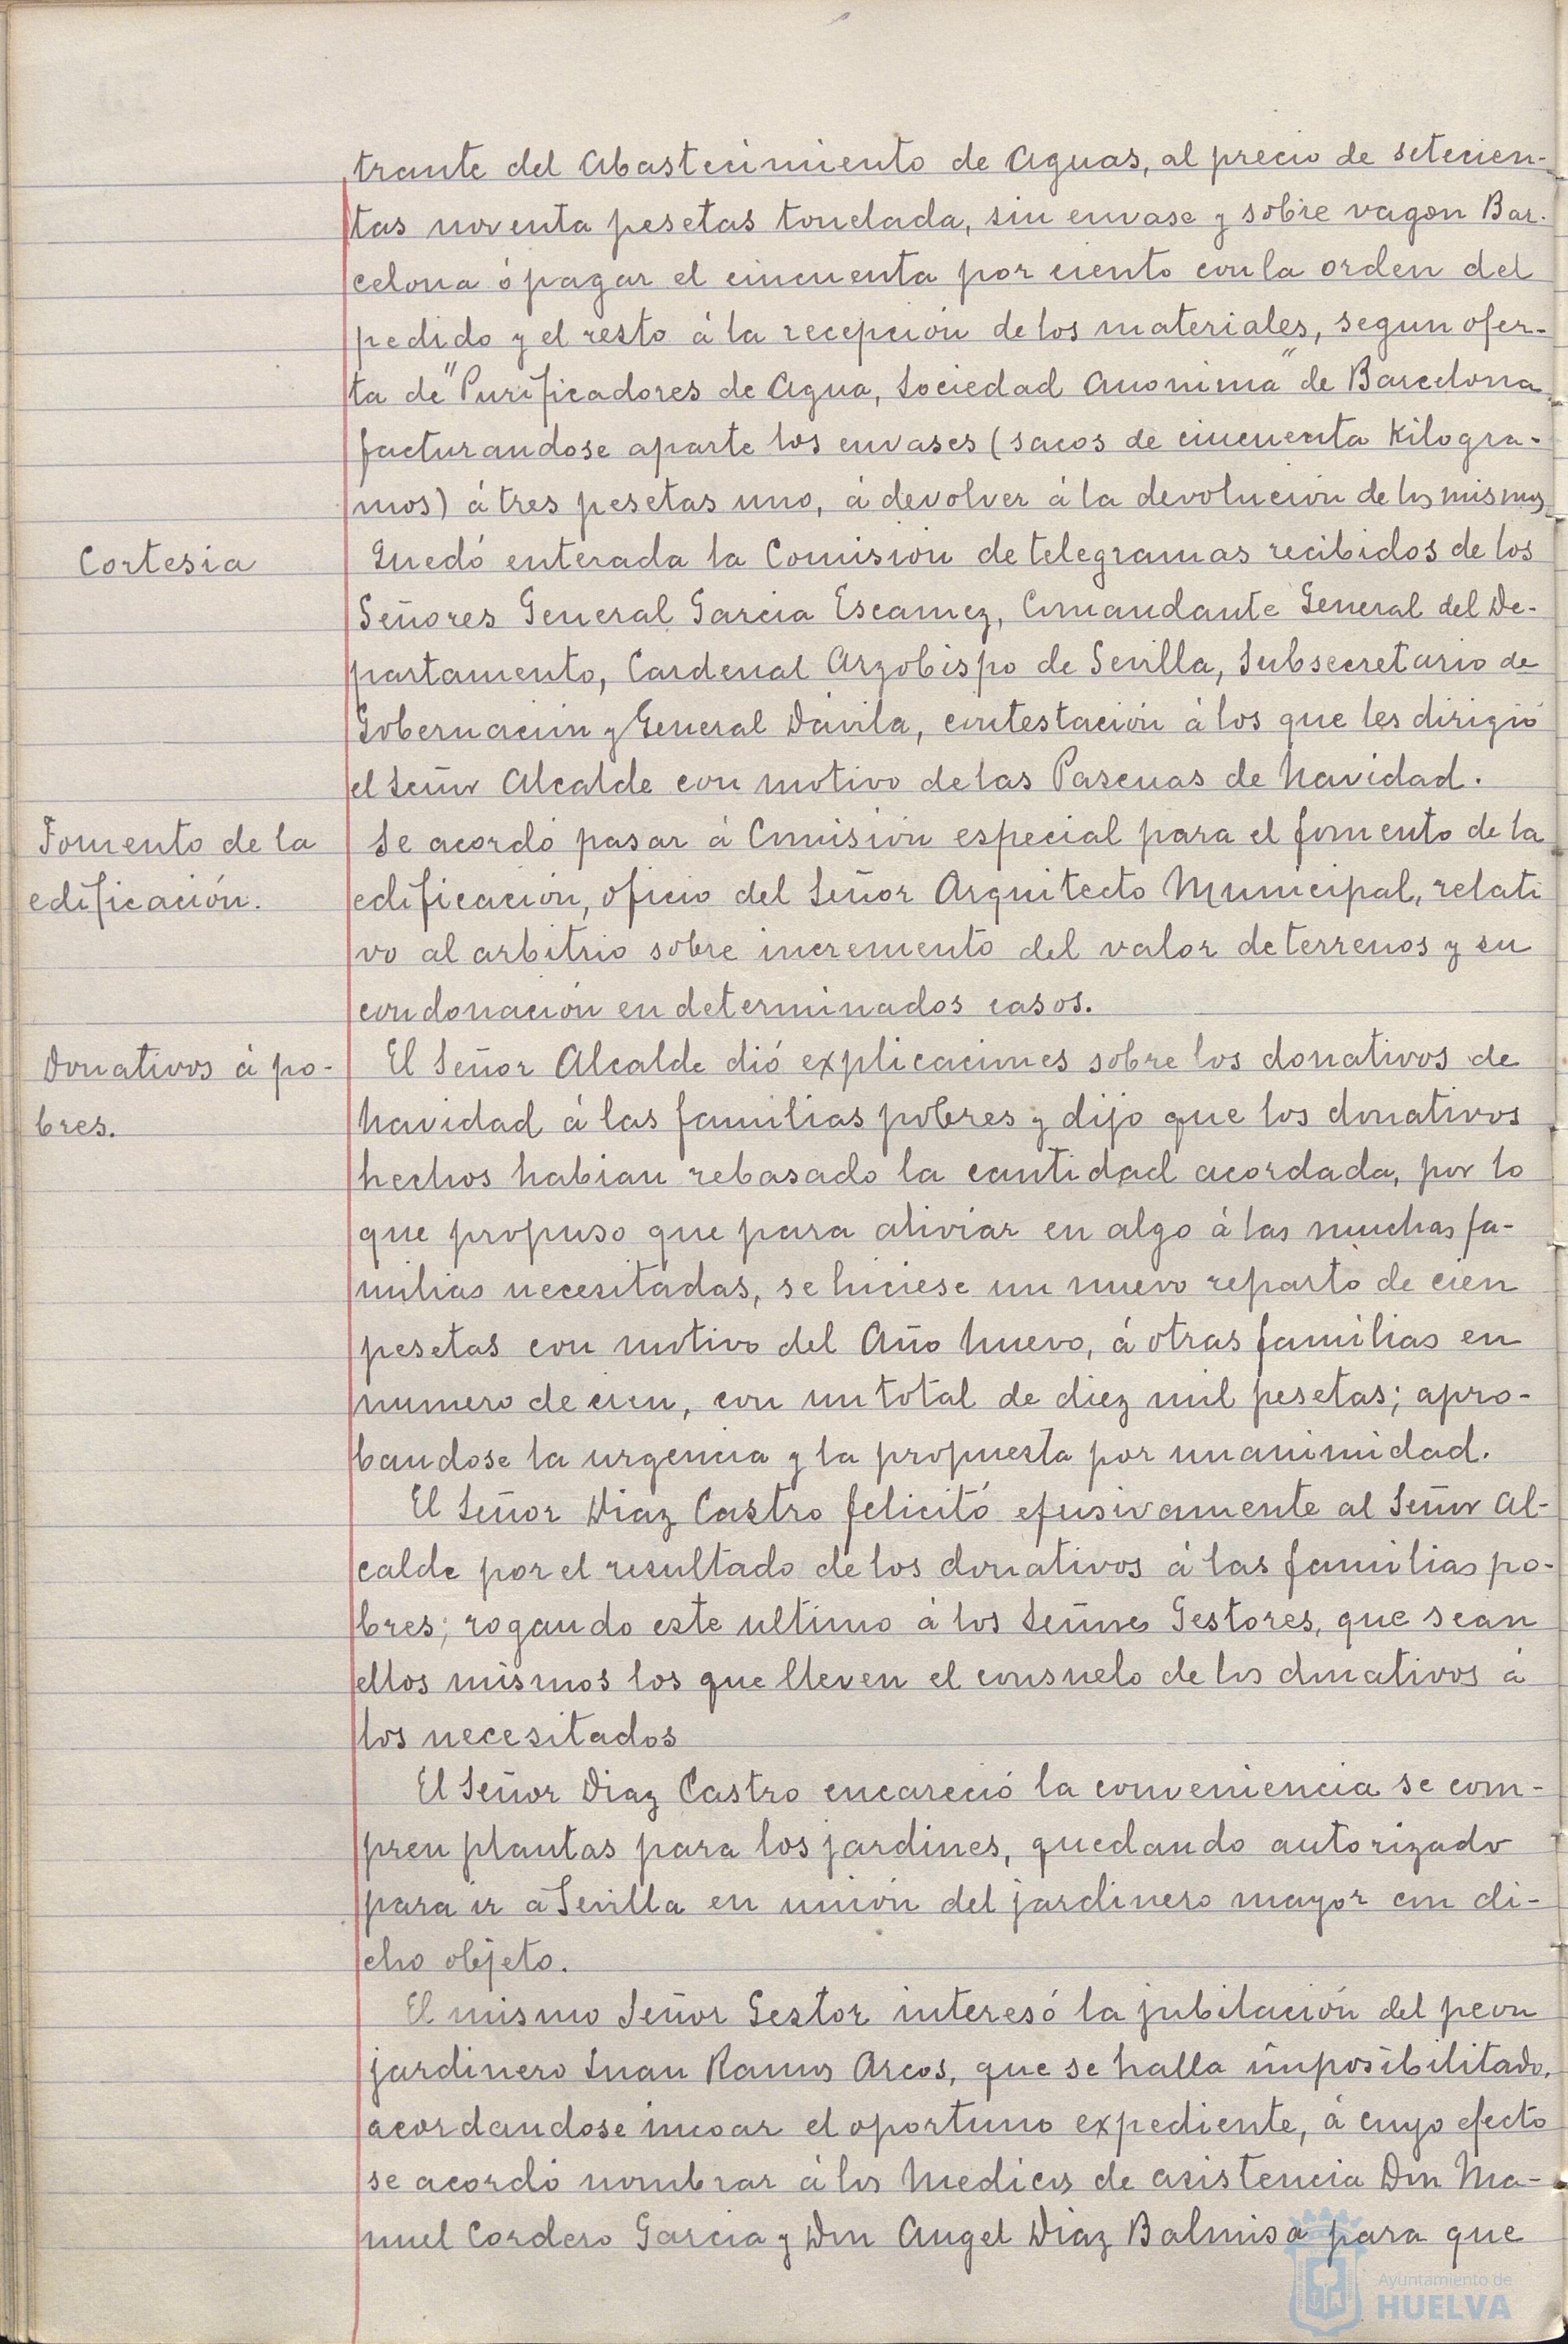 trante del Abastecimiento de Aguas, al precio de setecien-
tas noventa pesetas tonelada, sin envase y sobre vagon Bar-
celona ó pagar el cincuenta por ciento con la orden del
pedido y el resto á la recepción de los materiales, segun ofer-
ta de "Purificadores de Agua, Sociedad Anonima" de Barcelona
facturandose aparte los envases (sacos de cincuenta Kilogra-
mos) á tres pesetas uno, á devolver á la devolución de los mismos
Cortesia
Quedó enterada la Comisión de telegramas recibidos de los
Señores General Garcia Escamez, Comandante General del De-
partamento, Cardenal Arzobispo de Sevilla, Subsecretario de
Gobernación y General Dávila, contestación á los que les dirigió
el Señor Alcalde con motivo de las Pascuas de Navidad.
Fomento de la
edificación.
Se acordó pasar á Comisión especial para el fomento de la
edificación, oficio del Señor Arquitecto Municipal, relati
vo al arbitrio sobre incremento del valor de terrenos y su
condonación en determinados casos.
Donativos á po-
bres.
El Señor Alcalde dió explicaciones sobre los donativos de
Navidad á las familias pobres y dijo que los donativos
hechos habian rebasado la cantidad acordada, por lo
que propuso que para aliviar en algo á las muchas fa-
milias necesitadas, se hiciese un nuevo reparto de cien
pesetas con motivo del Año Nuevo, á otras familias en
numero de cien, con un total de diez mil pesetas; apro-
bandose la urgencia y la propuesta por unanimidad.
El Señor Diaz Castro felicitó efusivamente al Señor Al-
calde por el resultado de los donativos á las familias po-
bres; rogando este ultimo á los Señores Gestores, que sean
ellos mismos los que lleven el consuelo de los donativos á
los necesitados
El Señor Diaz Castro encareció la conveniencia se com-
pren plantas para los jardines, quedando autorizado
para ir a Sevilla en unión del jardinero mayor con di-
cho objeto.
El mismo Señor Gestor interesó la jubilación del peon
jardinero Juan Ramos Arcos, que se halla imposibilitado,
acordandose incoar el oportuno expediente, á cuyo efecto
se acordó nombrar á los Medicos de asistencia Don Ma-
nuel Cordero Garcia y Don Angel Diaz Balmisa para que
Ayuntamiento de
HUELVA